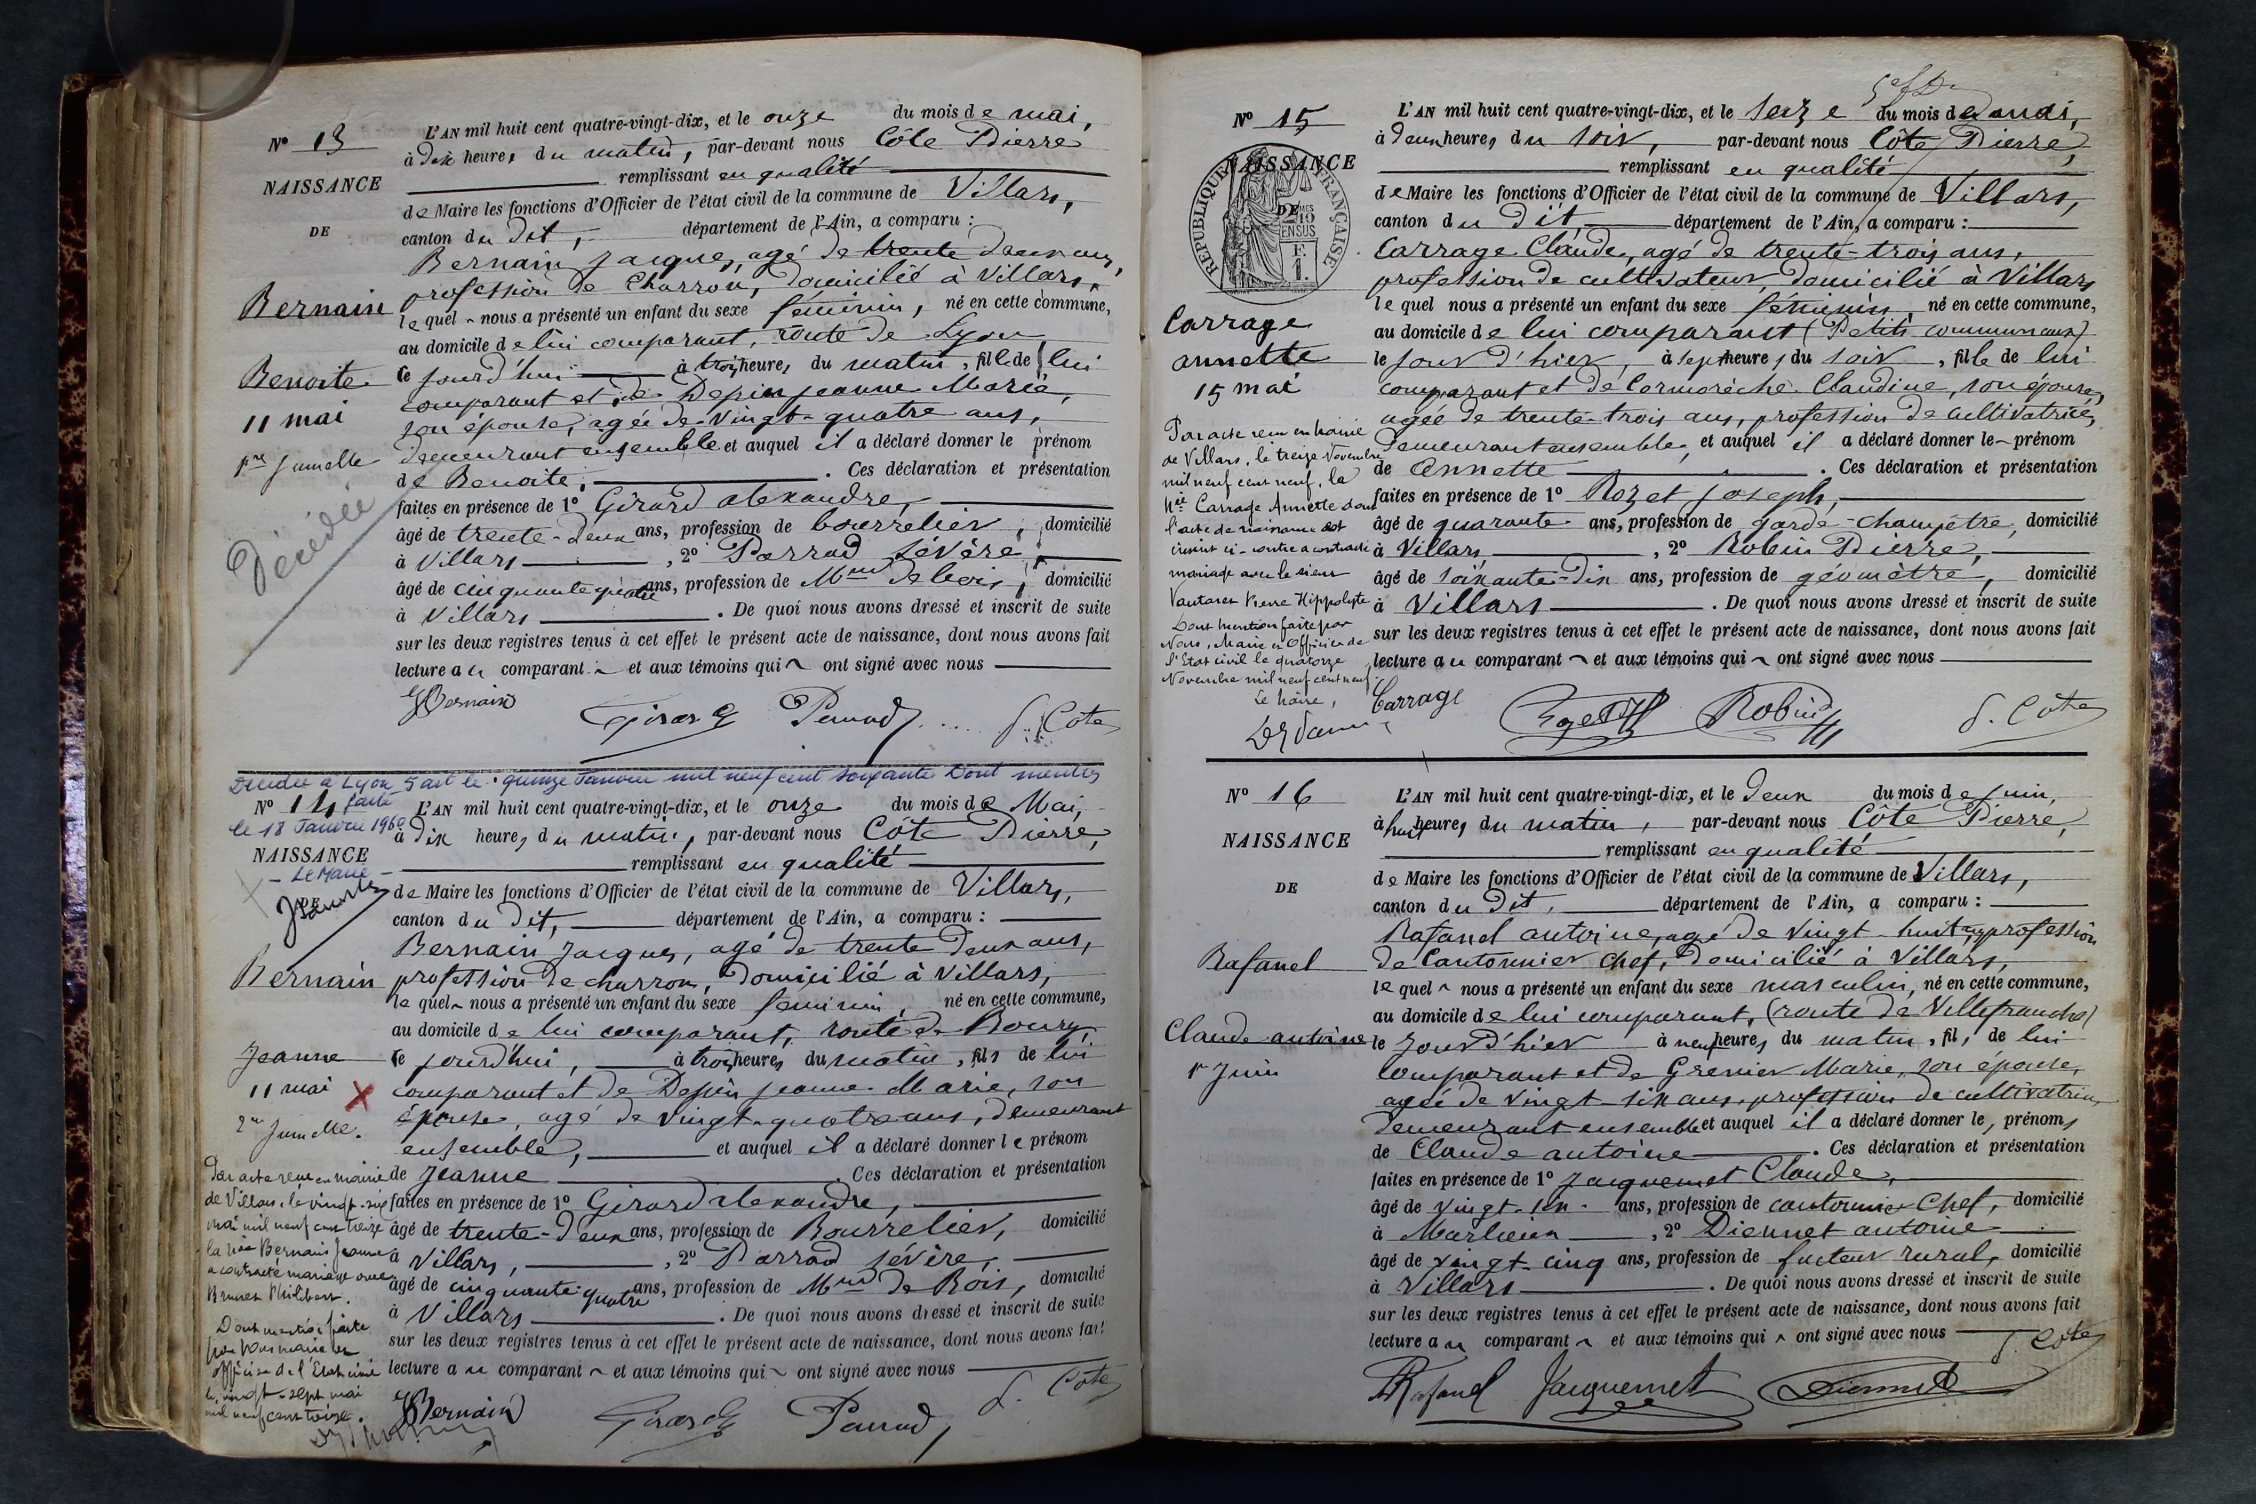 N° 13
NAISSANCE
DE
Bernain
Benoite
11 mai
1re Jumelle
Décédée
L'AN mil huit cent quatre-vingt-dix, et le onze du mois de mai,
à dix heures du matin, par-devant nous Côte Pierre
remplissant en qualité
de Maire les fonctions d'Officier de l'état civil de la commune de Villars,
canton du dit, département de l'Ain, a comparu :
Bernain Jacques, agé de trente deux ans,
profession de Charron, domicilié à Villars,
lequel nous a présenté un enfant du sexe féminin, né en cette commune,
au domicile de lui comparant, route de Lyon
ce jourd'hui à trois heures du matin, fille de lui
comparant et de Depin Jeanne Marie,
son épouse, agée de vingt-quatre ans,
demeurant ensemble et auquel il a déclaré donner le prénom
de Benoite. Ces déclaration et présentation
faites en présence de 1° Girard alexandre,
âgé de trente-deux ans, profession de bourrelier, domicilié
à Villars, 2° Parrad Sévère,
âgé de cinquante quatre ans, profession de Md de bois, domicilié
à Villars. De quoi nous avons dressé et inscrit de suite
sur les deux registres tenus à cet effet le présent acte de naissance, dont nous avons fait
lecture au comparant et aux témoins qui ont signé avec nous
Bernain Girard Parrad P. Côte
Décédée à Lyon 5 art le quinze Janvier mil neuf cent soixante Dont mention
faite
le 18 Janvier 1960
Le Maire
N° 14
NAISSANCE
DE
Bernain
Jeanne
11 mai
2me Jumelle.
Par acte reçu en mairie
de Villars, le vingt-six
mai mil neuf cent treize
la née Bernain Jeanne
a contracté mariage avec
Brunet Philibert.
Dont mention faite
par Nous maire et
officier de l'Etat civil
le vingt-sept mai
mil neuf cent treize.
L'AN mil huit cent quatre-vingt-dix, et le onze du mois de Mai,
à dix heures du matin, par-devant nous Côte Pierre,
remplissant en qualité
de Maire les fonctions d'Officier de l'état civil de la commune de Villars,
canton du dit, département de l'Ain, a comparu :
Bernain Jacques, agé de trente deux ans,
profession de charron, domicilié à Villars,
lequel nous a présenté un enfant du sexe féminin, né en cette commune,
au domicile de lui comparant, route de Bourg
ce jourd'hui, à trois heures du matin, fils de lui
comparant et de Depin Jeanne Marie, son
épouse, agé de vingt-quatre ans, demeurant
ensemble, et auquel il a déclaré donner le prénom
de Jeanne. Ces déclaration et présentation
faites en présence de 1° Girard alexandre,
âgé de trente-deux ans, profession de Bourrelier, domicilié
à Villars, 2° Parrad Sévère,
âgé de cinquante quatre ans, profession de Md de Bois, domicilié
à Villars. De quoi nous avons dressé et inscrit de suite
sur les deux registres tenus à cet effet le présent acte de naissance, dont nous avons fait
lecture au comparant et aux témoins qui ont signé avec nous
Bernain Girard Parrad P. Côte
N° 15
NAISSANCE
DE
RÉPUBLIQUE FRANÇAISE
Carrage
annette
15 mai
Par acte reçu en mairie
de Villars, le treize Novembre
mil neuf cent neuf, la
née Carrage Annette dont
l'acte de naissance est
inscrit ci-contre a contracté
mariage avec le sieur
Pierre Hippolyte
Dont mention faite par
Nous, Maire et Officier de
l'Etat civil le quatorze
Novembre mil neuf cent neuf.
Le Maire,
L'AN mil huit cent quatre-vingt-dix, et le seize du mois de mai,
à deux heures du soir, par-devant nous Côte Pierre,
remplissant en qualité
de Maire les fonctions d'Officier de l'état civil de la commune de Villars,
canton du dit département de l'Ain, a comparu :
Carrage Claude, agé de trente-trois ans,
profession de cultivateur, domicilié à Villars
lequel nous a présenté un enfant du sexe féminin, né en cette commune,
au domicile de lui comparant (Petits communaux)
le jour d'hier, à sept heures du soir, fille de lui
comparant et de Cormorèche Claudine, son épouse,
agée de trente-trois ans, profession de cultivatrice,
demeurant ensemble, et auquel il a déclaré donner le prénom
de Annette. Ces déclaration et présentation
faites en présence de 1° Rozet Joseph,
âgé de quarante ans, profession de garde-champêtre, domicilié
à Villars, 2° Robin Pierre,
âgé de soixante-dix ans, profession de géomètre, domicilié
à Villars. De quoi nous avons dressé et inscrit de suite
sur les deux registres tenus à cet effet le présent acte de naissance, dont nous avons fait
lecture au comparant et aux témoins qui ont signé avec nous
Carrage Rozet Robin P. Côte
N° 16
NAISSANCE
DE
Rafanel
Claude antoine
1er Juin
L'AN mil huit cent quatre-vingt-dix, et le deux du mois de juin,
à huit heures du matin, par-devant nous Côte Pierre,
remplissant en qualité
de Maire les fonctions d'Officier de l'état civil de la commune de Villars,
canton du dit, département de l'Ain, a comparu :
Rafanel antoine, agé de vingt-huit ans, profession
de Cantonnier chef, domicilié à Villars,
lequel nous a présenté un enfant du sexe masculin, né en cette commune,
au domicile de lui comparant, (route de Villefranche)
le jour d'hier à neuf heures du matin, fils de lui
comparant et de Grenier Marie, son épouse,
agée de vingt-six ans, profession de cultivatrice
demeurant ensemble et auquel il a déclaré donner les prénoms
de Claude antoine. Ces déclaration et présentation
faites en présence de 1° Jacquemet Claude,
âgé de vingt-six ans, profession de cantonnier Chef, domicilié
à Marlieux, 2° Diennet antoine
âgé de vingt-cinq ans, profession de facteur rural, domicilié
à Villars. De quoi nous avons dressé et inscrit de suite
sur les deux registres tenus à cet effet le présent acte de naissance, dont nous avons fait
lecture au comparant et aux témoins qui ont signé avec nous
P. Côte
Rafanel Jacquemet Diennet